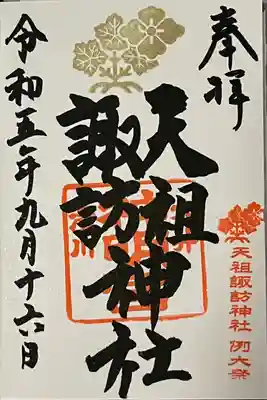 奉拝
天祖
諏訪神社
天祖諏訪神社 例大祭
令和五年九月十六日